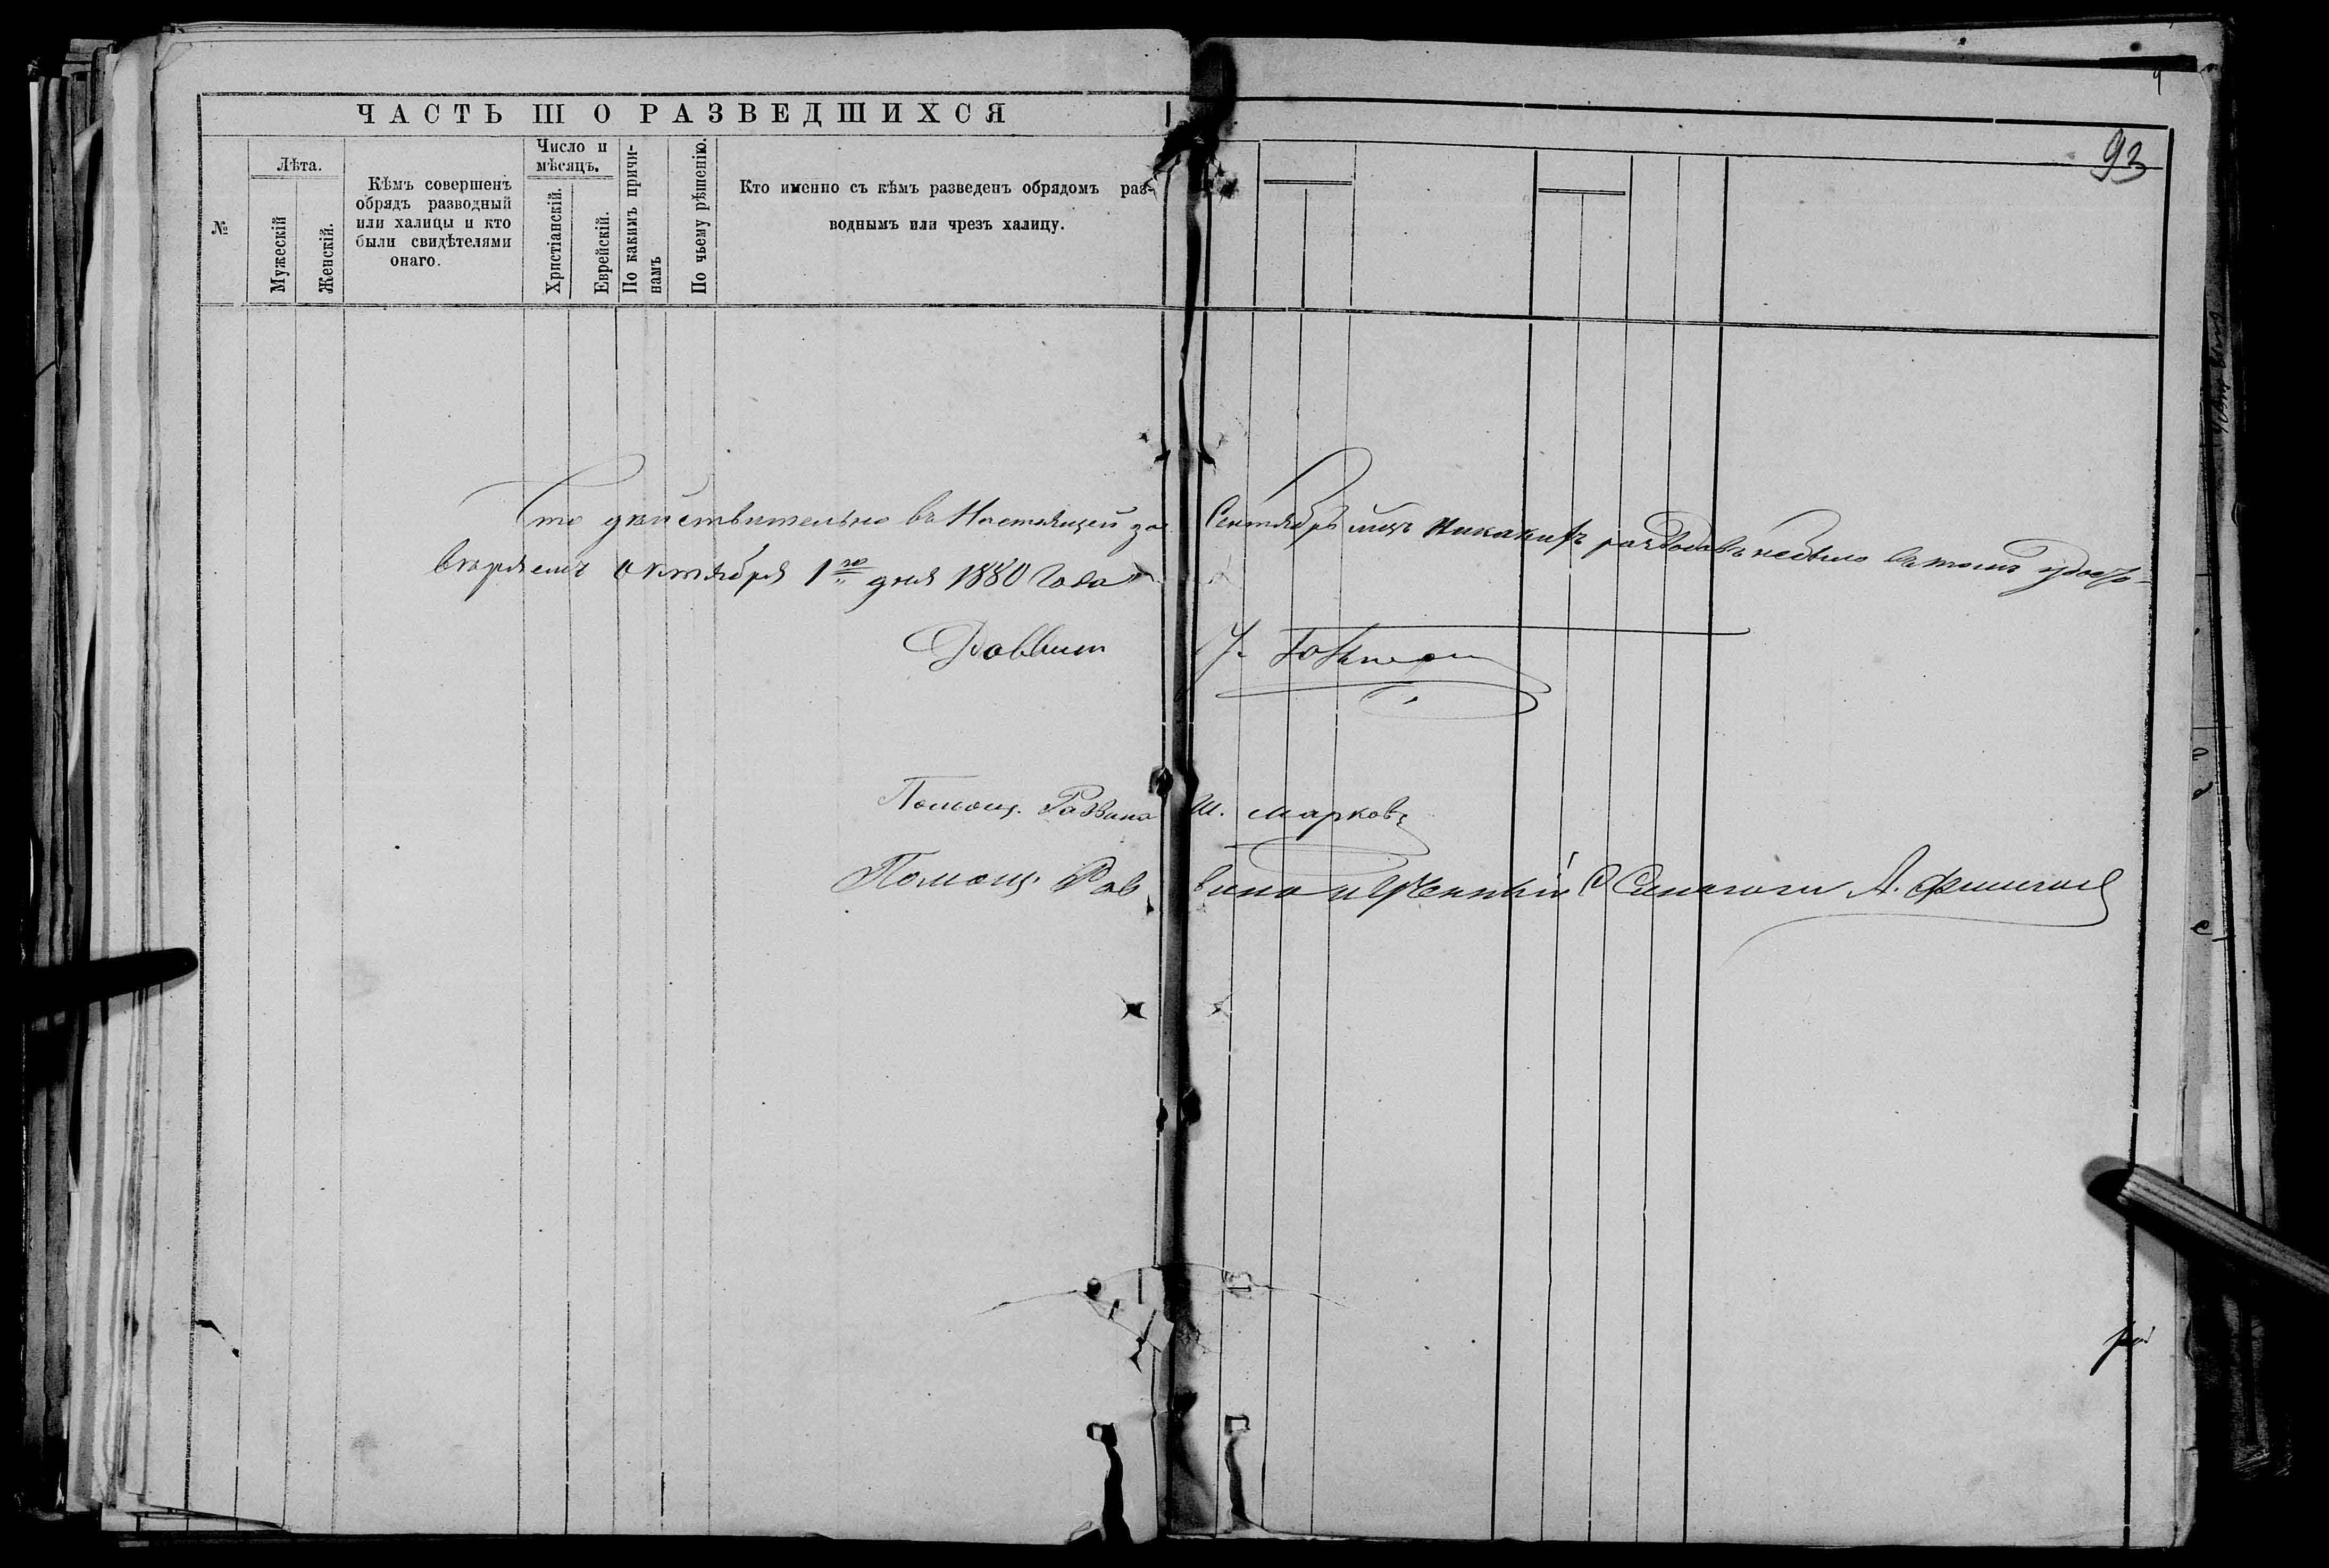 ЧАСТЬ III О РАЗВЕДШИХСЯ
93
№
Лѣта.
Мужескій
Женскій.
Кѣмъ совершенъ
обрядъ разводный
или халицы и кто
были свидѣтелями
онаго.
Число и
мѣсяцъ.
Христіанскій.
Еврейскій.
По какимъ причи-
намъ
По чьему рѣшенію.
Кто именно съ кѣмъ разведенъ обрядомъ раз-
воднымъ или чрезъ халицу.
Что дѣйствительно въ Настоящей за Сентябрь мѣц никакихъ разводовъ небыло въ томъ удосто-
вѣряемъ Октября 1го дня 1880 Года
Раввин
Помощ. Раввина Ш. Марковъ
Помощ. Раввина и Ученный Синагоги А.